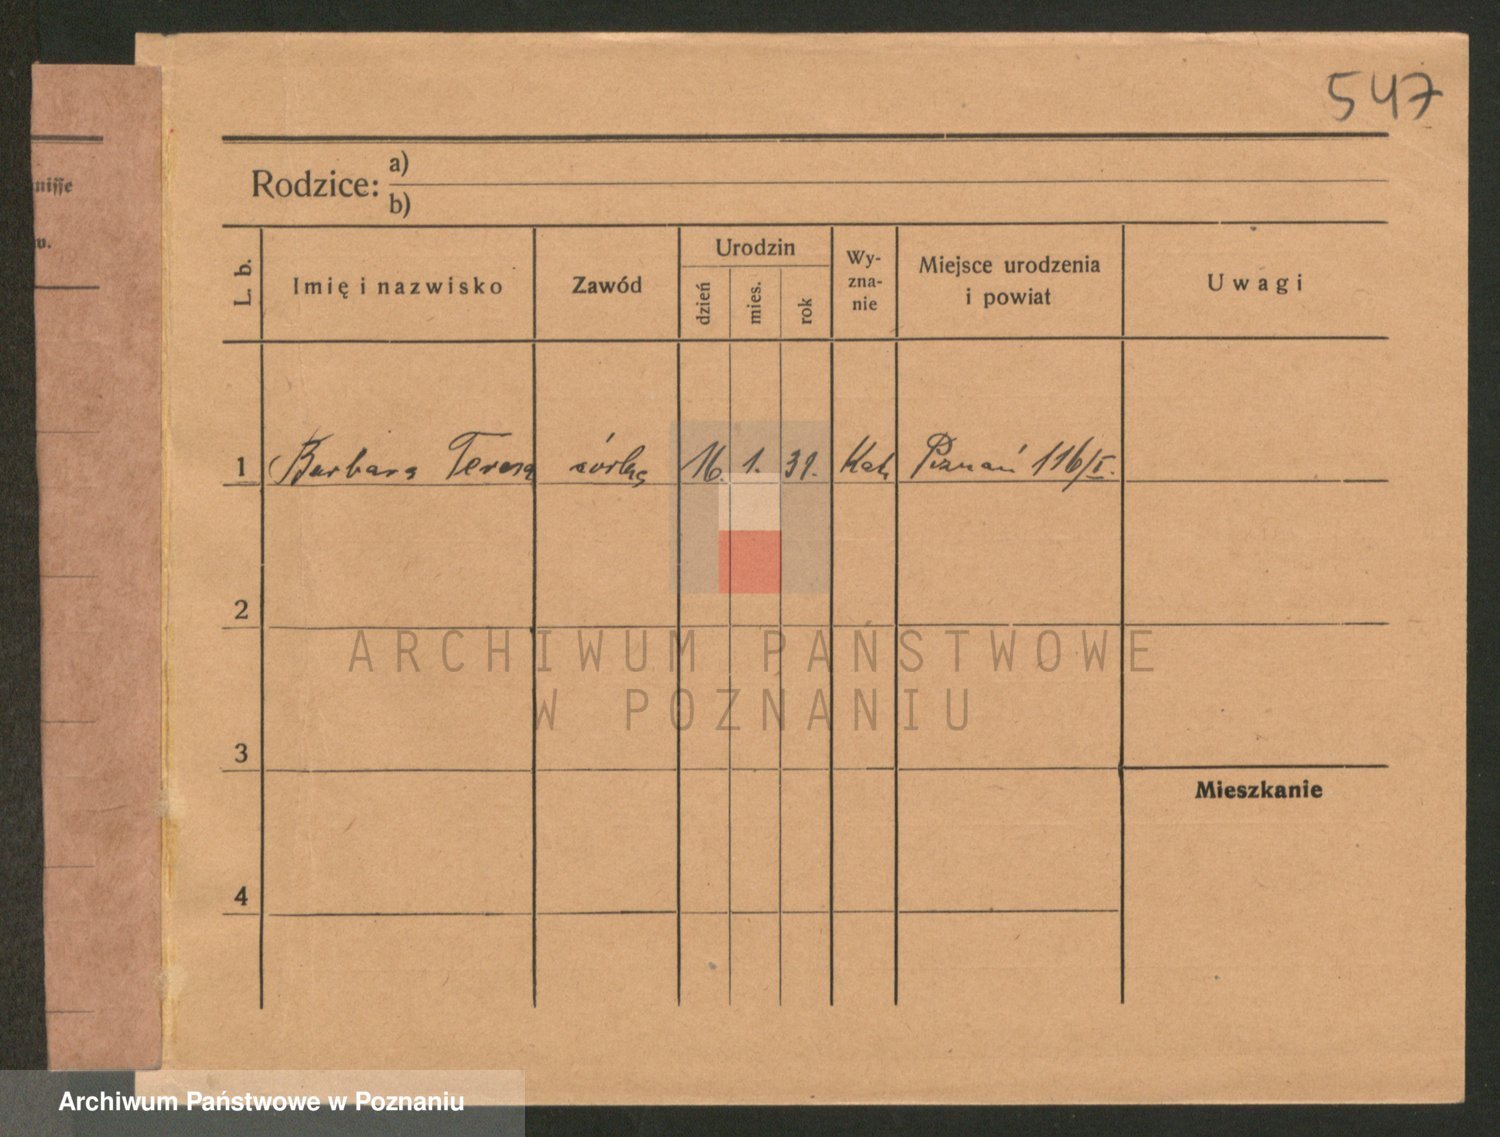 547
nisse
w.
Rodzice: a)
b)
L. b.
Imię i nazwisko
Zawód
Urodzin
dzień
mies.
rok
Wy-
zna-
nie
Miejsce urodzenia
i powiat
Uwagi
1 Barbara Teresa córka 16. 1. 31. Kat. Poznań 116/I.
2
3
Mieszkanie
4
ARCHIWUM PAŃSTWOWE
W POZNANIU
Archiwum Państwowe w Poznaniu